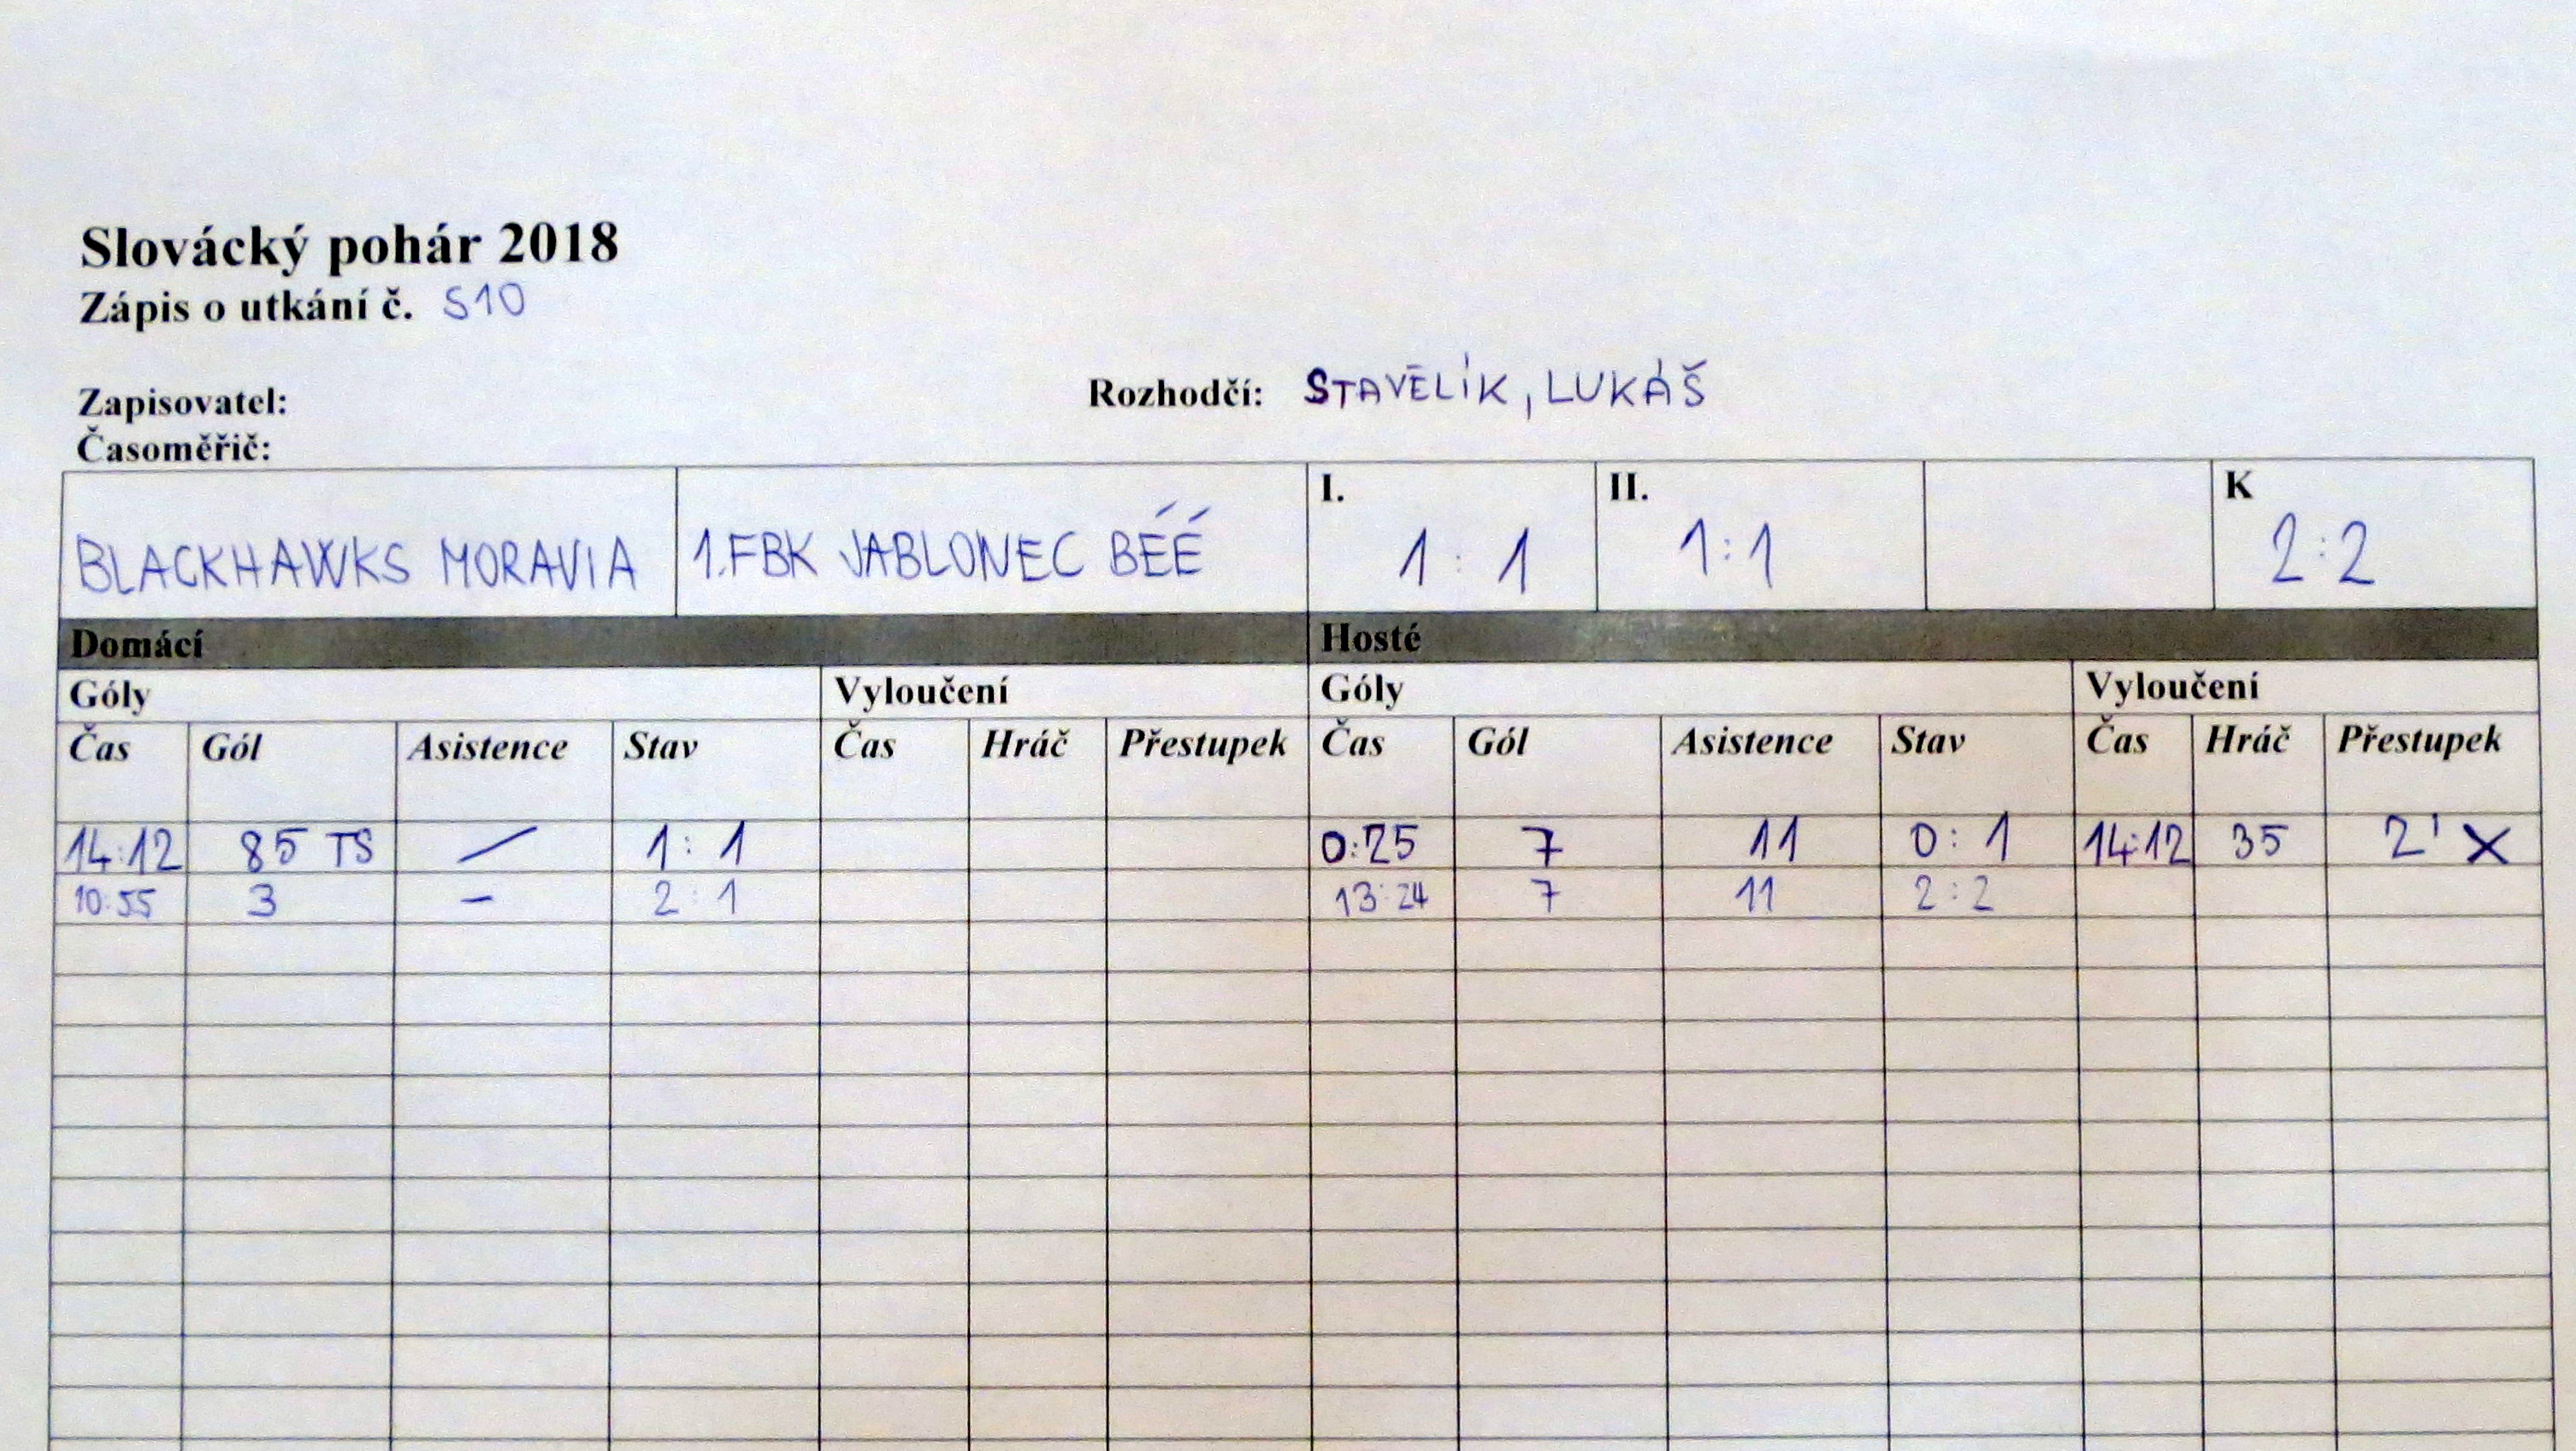 Slovácký pohár 2018
Zápis o utkání č. S10
Zapisovatel: Rozhodčí: STAVĚLÍK, LUKÁŠ
Časoměřič:
I. II. K
BLACKHAWKS MORAVIA 1.FBK JABLONEC BÉÉ 1:1 1:1 2:2
Domácí Hosté
Góly Vyloučení Góly Vyloučení
Čas Gól Asistence Stav Čas Hráč Přestupek Čas Gól Asistence Stav Čas Hráč Přestupek
14:12 85 TS / 1:1 0:25 7 11 0:1 14:12 35 2' X
10:55 3 - 2:1 13:24 7 11 2:2